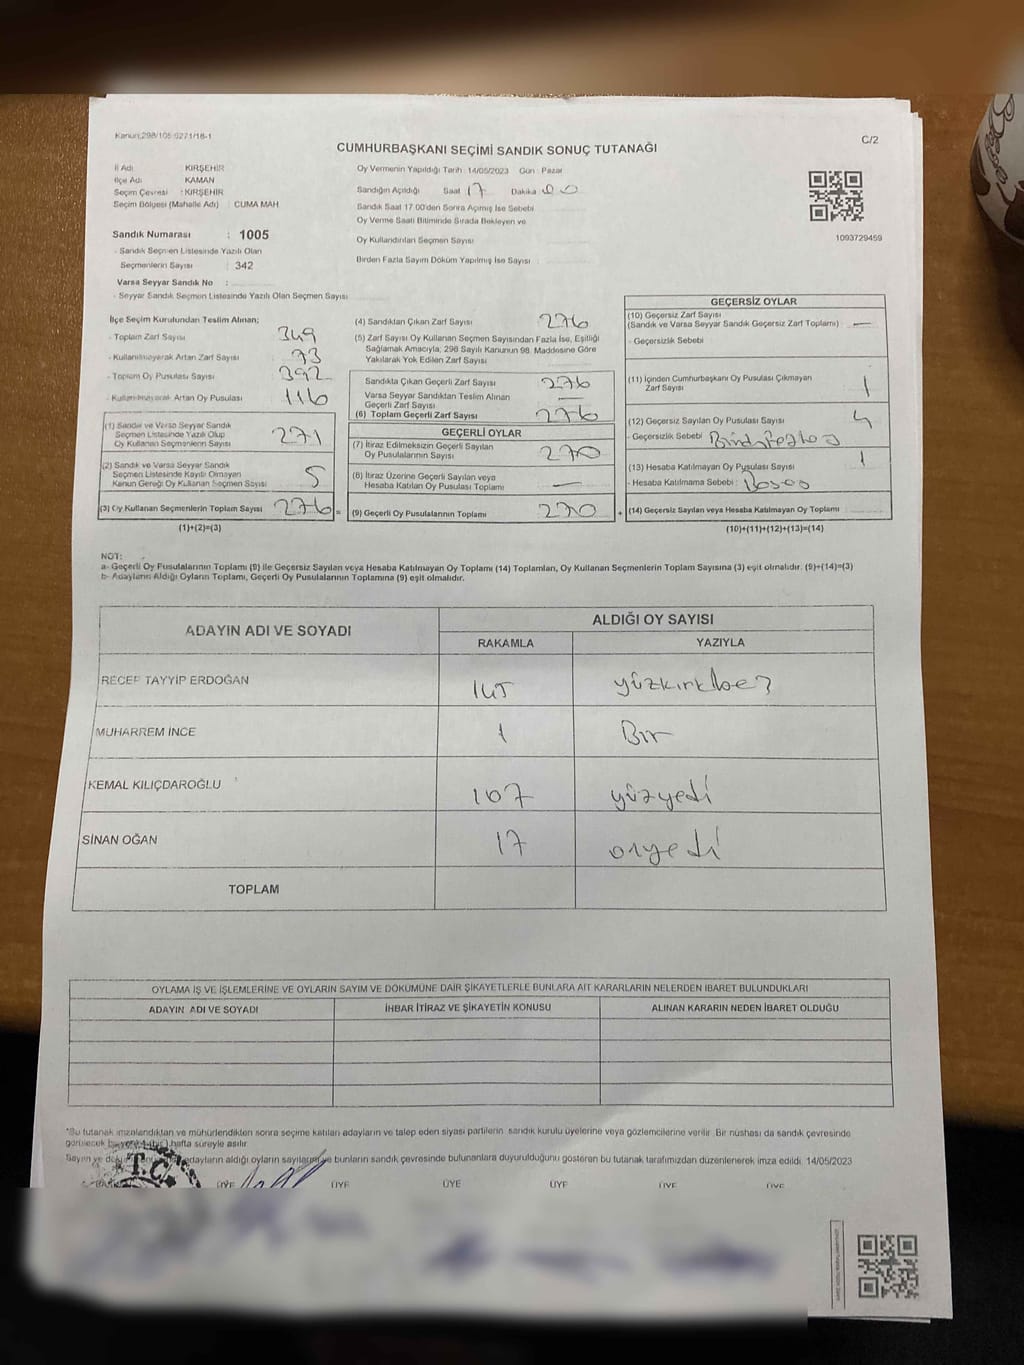 Kanun:298/105 0271/18-1
C/2
CUMHURBAŞKANI SEÇİMİ SANDIK SONUÇ TUTANAĞI
İl Adı KIRŞEHİR
İlçe Adı KAMAN
Seçim Çevresi : KIRŞEHİR
Seçim Bölgesi (Mahalle Adı) : CUMA MAH
Sandık Numarası : 1005
- Sandık Seçmen Listesinde Yazılı Olan
Seçmenlerin Sayısı : 342
Varsa Seyyar Sandık No :
- Seyyar Sandık Seçmen Listesinde Yazılı Olan Seçmen Sayısı
Oy Vermenin Yapıldığı Tarih :14/05/2023 Gün : Pazar
Sandığın Açıldığı Saat 17 Dakika 00
Sandık Saat 17.00'den Sonra Açılmış İse Sebebi
Oy Verme Saati Bitiminde Sırada Bekleyen ve
Oy Kullandırılan Seçmen Sayısı
Birden Fazla Sayım Döküm Yapılmış İse Sayısı :
1093729459
İlçe Seçim Kurulundan Teslim Alınan;
- Toplam Zarf Sayısı 349
- Kullanılmayarak Artan Zarf Sayısı 73
- Toplam Oy Pusulası Sayısı 392
- Kullanılmayarak Artan Oy Pusulası 116
(1) Sandık ve Varsa Seyyar Sandık
Seçmen Listesinde Yazılı Olup
Oy Kullanan Seçmenlerin Sayısı 271
(2) Sandık ve Varsa Seyyar Sandık
Seçmen Listesinde Kayıtlı Olmayan
Kanun Gereği Oy Kullanan Seçmen Sayısı 5
(3) Oy Kullanan Seçmenlerin Toplam Sayısı 276 =
(1)+(2)=(3)
(4) Sandıktan Çıkan Zarf Sayısı 276
(5) Zarf Sayısı Oy Kullanan Seçmen Sayısından Fazla İse, Eşitliği
Sağlamak Amacıyla, 298 Sayılı Kanunun 98. Maddesine Göre
Yakılarak Yok Edilen Zarf Sayısı
Sandıkta Çıkan Geçerli Zarf Sayısı 276
Varsa Seyyar Sandıktan Teslim Alınan
Geçerli Zarf Sayısı —
(6) Toplam Geçerli Zarf Sayısı 276
GEÇERLİ OYLAR
(7) İtiraz Edilmeksizin Geçerli Sayılan
Oy Pusulalarının Sayısı 270
(8) İtiraz Üzerine Geçerli Sayılan veya
Hesaba Katılan Oy Pusulası Toplamı —
(9) Geçerli Oy Pusulalarının Toplamı 270 +
GEÇERSİZ OYLAR
(10) Geçersiz Zarf Sayısı
(Sandık ve Varsa Seyyar Sandık Geçersiz Zarf Toplamı) : —
- Geçersizlik Sebebi
(11) İçinden Cumhurbaşkanı Oy Pusulası Çıkmayan
Zarf Sayısı 1
(12) Geçersiz Sayılan Oy Pusulası Sayısı 4
- Geçersizlik Sebebi
(13) Hesaba Katılmayan Oy Pusulası Sayısı 1
- Hesaba Katılmama Sebebi :
(14) Geçersiz Sayılan veya Hesaba Katılmayan Oy Toplamı
(10)+(11)+(12)+(13)=(14)
NOT:
a- Geçerli Oy Pusulalarının Toplamı (9) ile Geçersiz Sayılan veya Hesaba Katılmayan Oy Toplamı (14) Toplamları, Oy Kullanan Seçmenlerin Toplam Sayısına (3) eşit olmalıdır. (9)+(14)=(3)
b- Adayların Aldığı Oyların Toplamı, Geçerli Oy Pusulalarının Toplamına (9) eşit olmalıdır.
ADAYIN ADI VE SOYADI
ALDIĞI OY SAYISI
RAKAMLA YAZIYLA
RECEP TAYYİP ERDOĞAN 145 yüzkırkbeş
MUHARREM İNCE 1 Bir
KEMAL KILIÇDAROĞLU 107 yüzyedi
SİNAN OĞAN 17 onyedi
TOPLAM
OYLAMA İŞ VE İŞLEMLERİNE VE OYLARIN SAYIM VE DÖKÜMÜNE DAİR ŞİKAYETLERLE BUNLARA AİT KARARLARIN NELERDEN İBARET BULUNDUKLARI
ADAYIN ADI VE SOYADI İHBAR İTİRAZ VE ŞİKAYETİN KONUSU ALINAN KARARIN NEDEN İBARET OLDUĞU
*Bu tutanak imzalandıktan ve mühürlendikten sonra seçime katılan adayların ve talep eden siyasi partilerin sandık kurulu üyelerine veya gözlemcilerine verilir. Bir nüshası da sandık çevresinde
görülecek bir yere 1 (bir) hafta süreyle asılır.
Sayım ve adayların aldığı oyların sayılarını ve bunların sandık çevresinde bulunanlara duyurulduğunu gösteren bu tutanak tarafımızdan düzenlenerek imza edildi. 14/05/2023
T.C.
ÜYE ÜYE ÜYE ÜYE ÜYE ÜYE